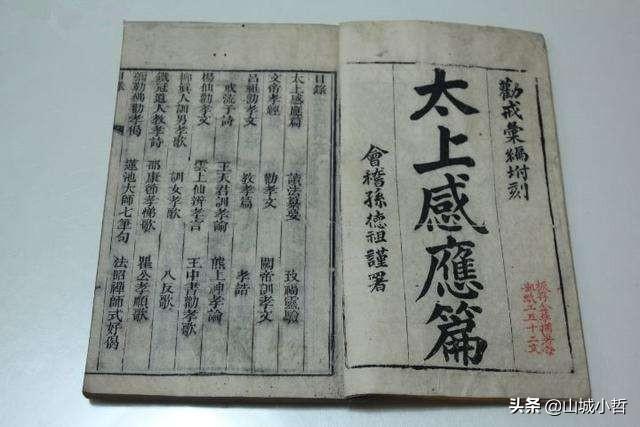 勸戒彙編坿刻
太上感應篇
會稽孫德祖謹署
目錄
太上感應篇 讀法纂要 致福靈驗
文帝孝經 勸孝文 關帝訓孝文
呂祖勸孝文 教孝篇 孝誥
戒流子詩 王天君訓孝諭 熊上神孝論
楊仙勸孝文 雲上仙辨孝言 王中書勸孝歌
柳眞人訓男孝歌 訓女孝歌 八反歌
鐵冠道人教孝詩 邵康節孝悌歌 瞿公孝順歌
彌勒佛勸孝偈 蓮池大師七筆句 法照禪師式好偈
目錄
头条 @山城小哲